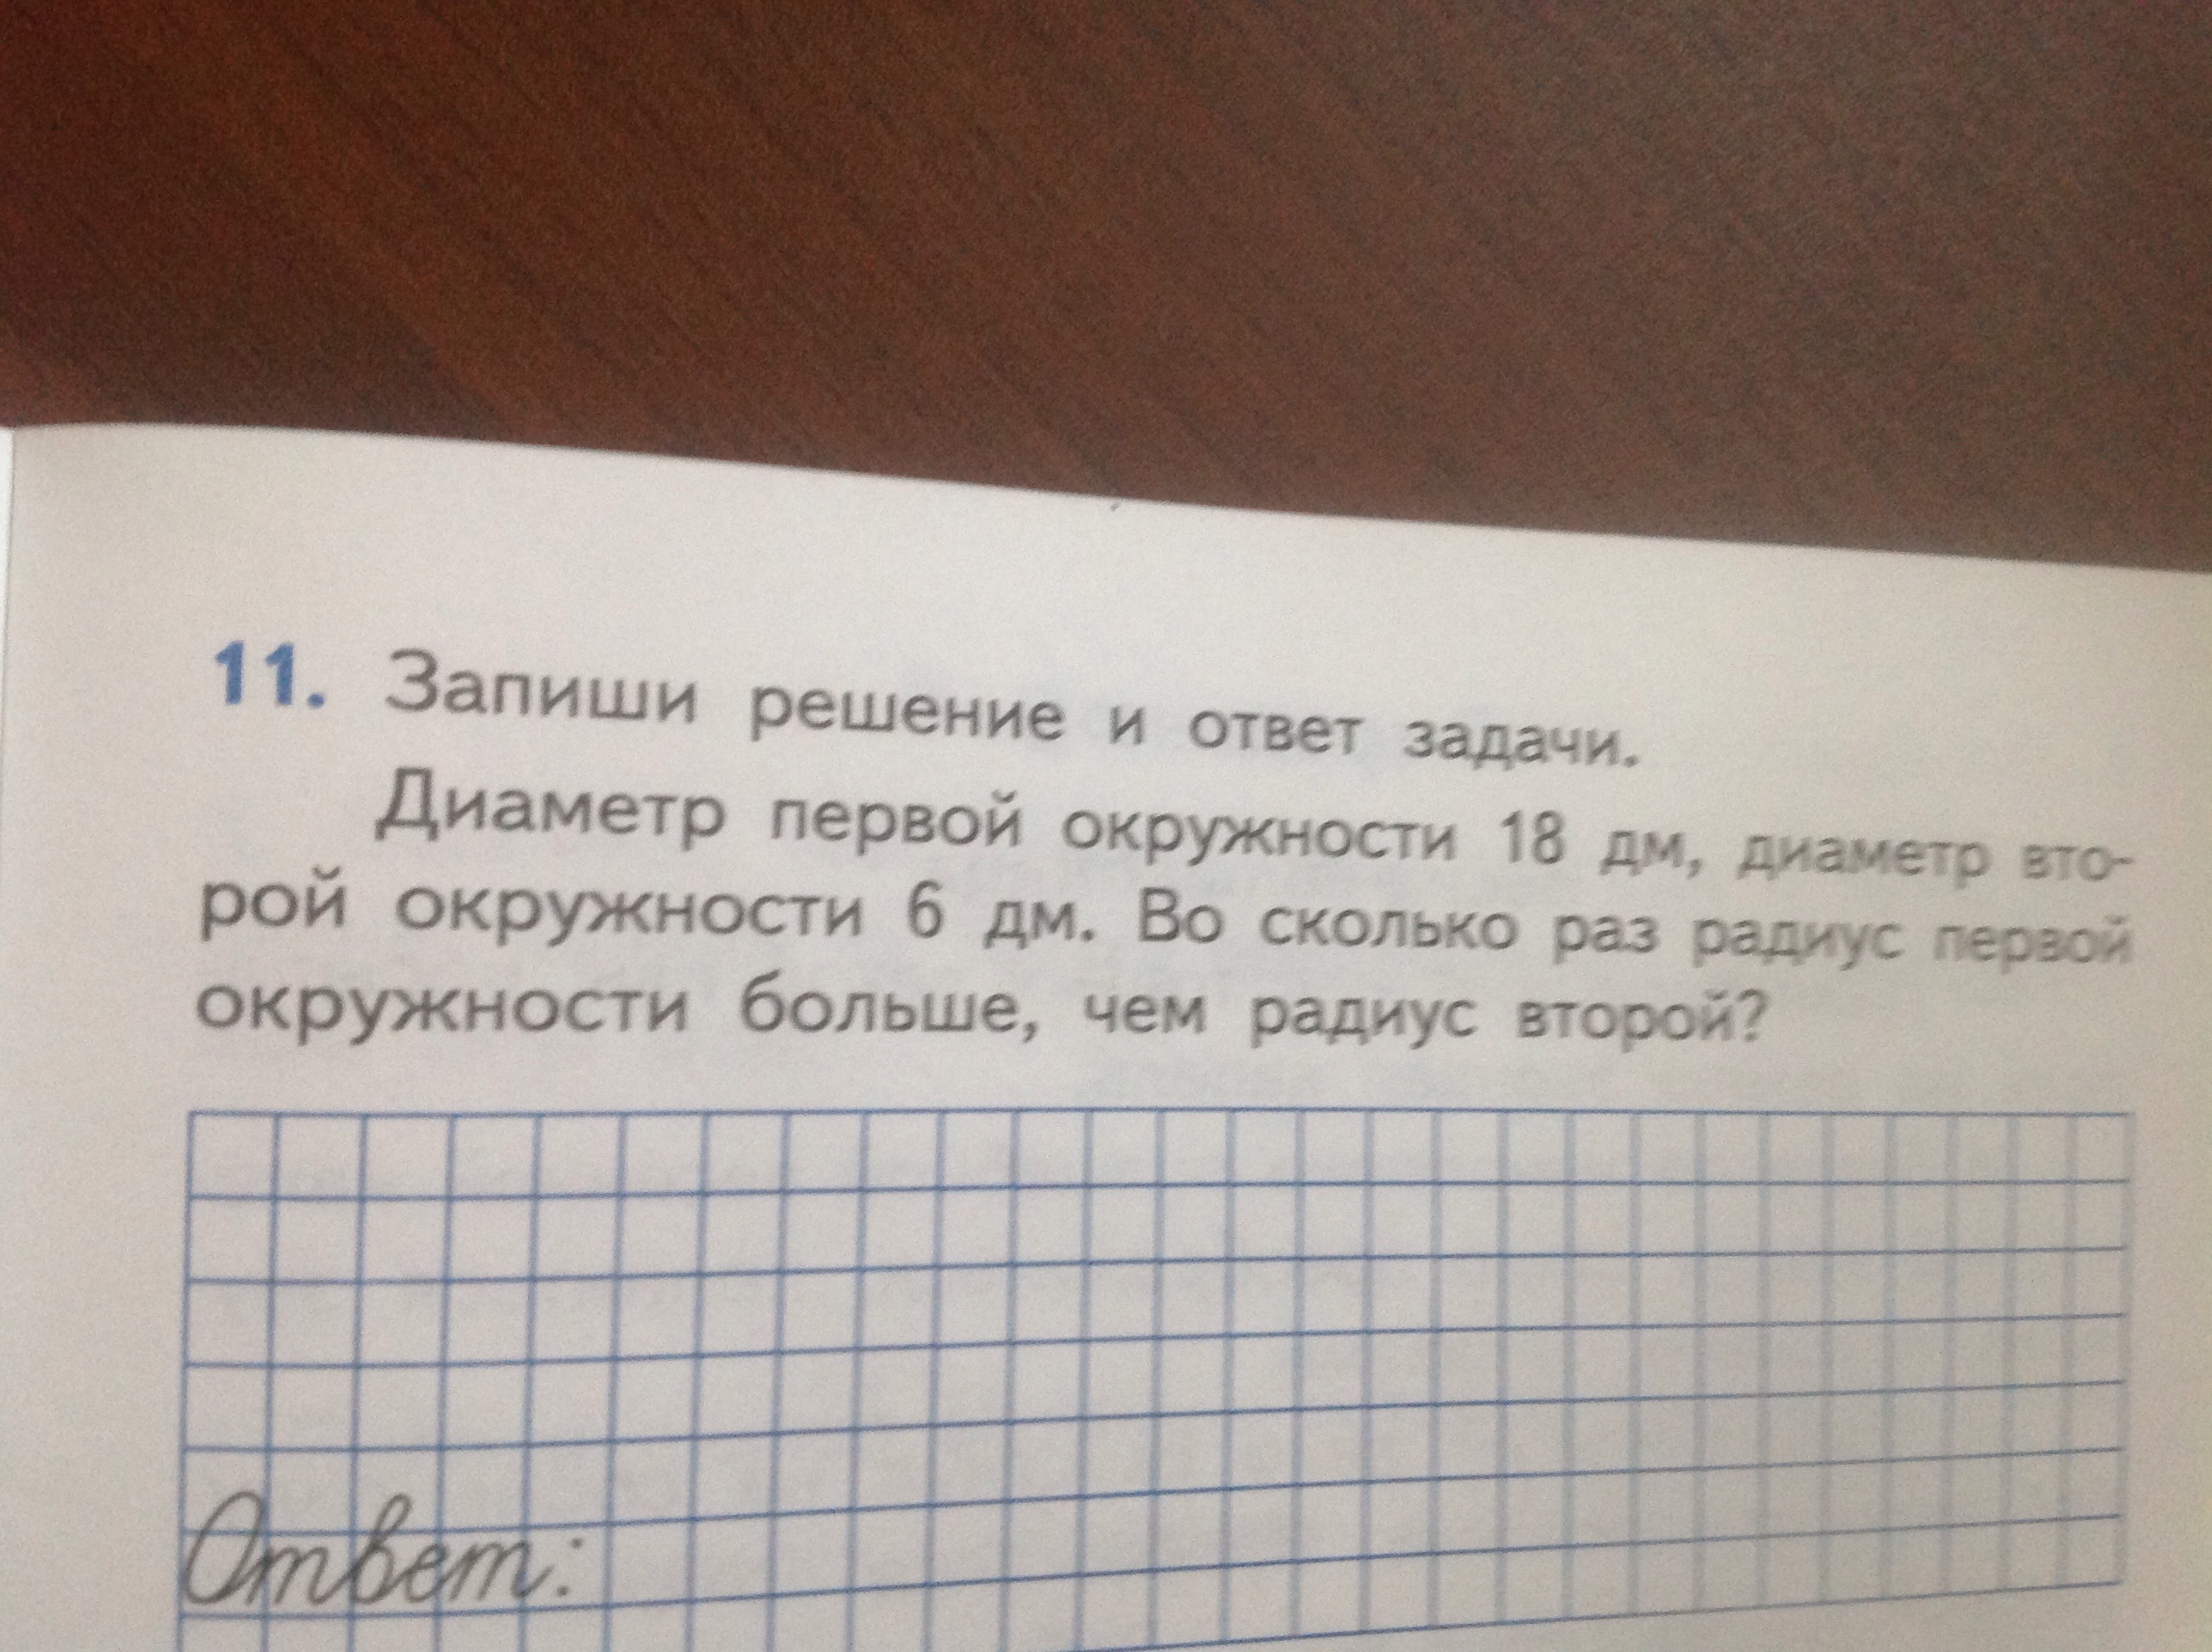 11. Запиши решение и ответ задачи.
Диаметр первой окружности 18 дм, диаметр вто-
рой окружности 6 дм. Во сколько раз радиус первой
окружности больше, чем радиус второй?
Ответ: